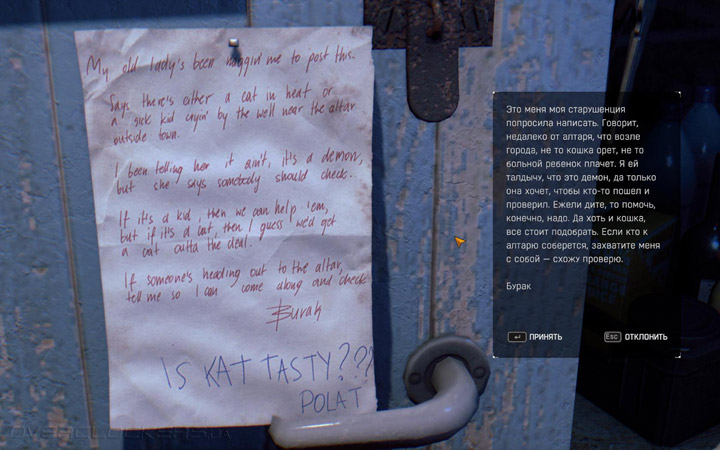 My old lady's been naggin' me to post this.
Says there's either a cat in heat or
a sick kid cryin' by the well near the altar
outside town.
I been telling her it ain't, it's a demon,
but she says somebody should check.
If it's a kid, then we can help 'em,
but if it's a cat, then I guess we'd get
a cat outta the deal.
If someone's heading out to the altar,
tell me so I can come along and check
Burak
IS KAT TASTY???
POLAT
Это меня моя старушенция
попросила написать. Говорит,
недалеко от алтаря, что возле
города, не то кошка орет, не то
больной ребенок плачет. Я ей
талдычу, что это демон, да только
она хочет, чтобы кто-то пошел и
проверил. Ежели дите, то помочь,
конечно, надо. Да хоть и кошка,
все стоит подобрать. Если кто к
алтарю соберется, захватите меня
с собой — схожу проверю.
Бурак
↵ ПРИНЯТЬ
Esc ОТКЛОНИТЬ
OVERCLOCKERS.UA